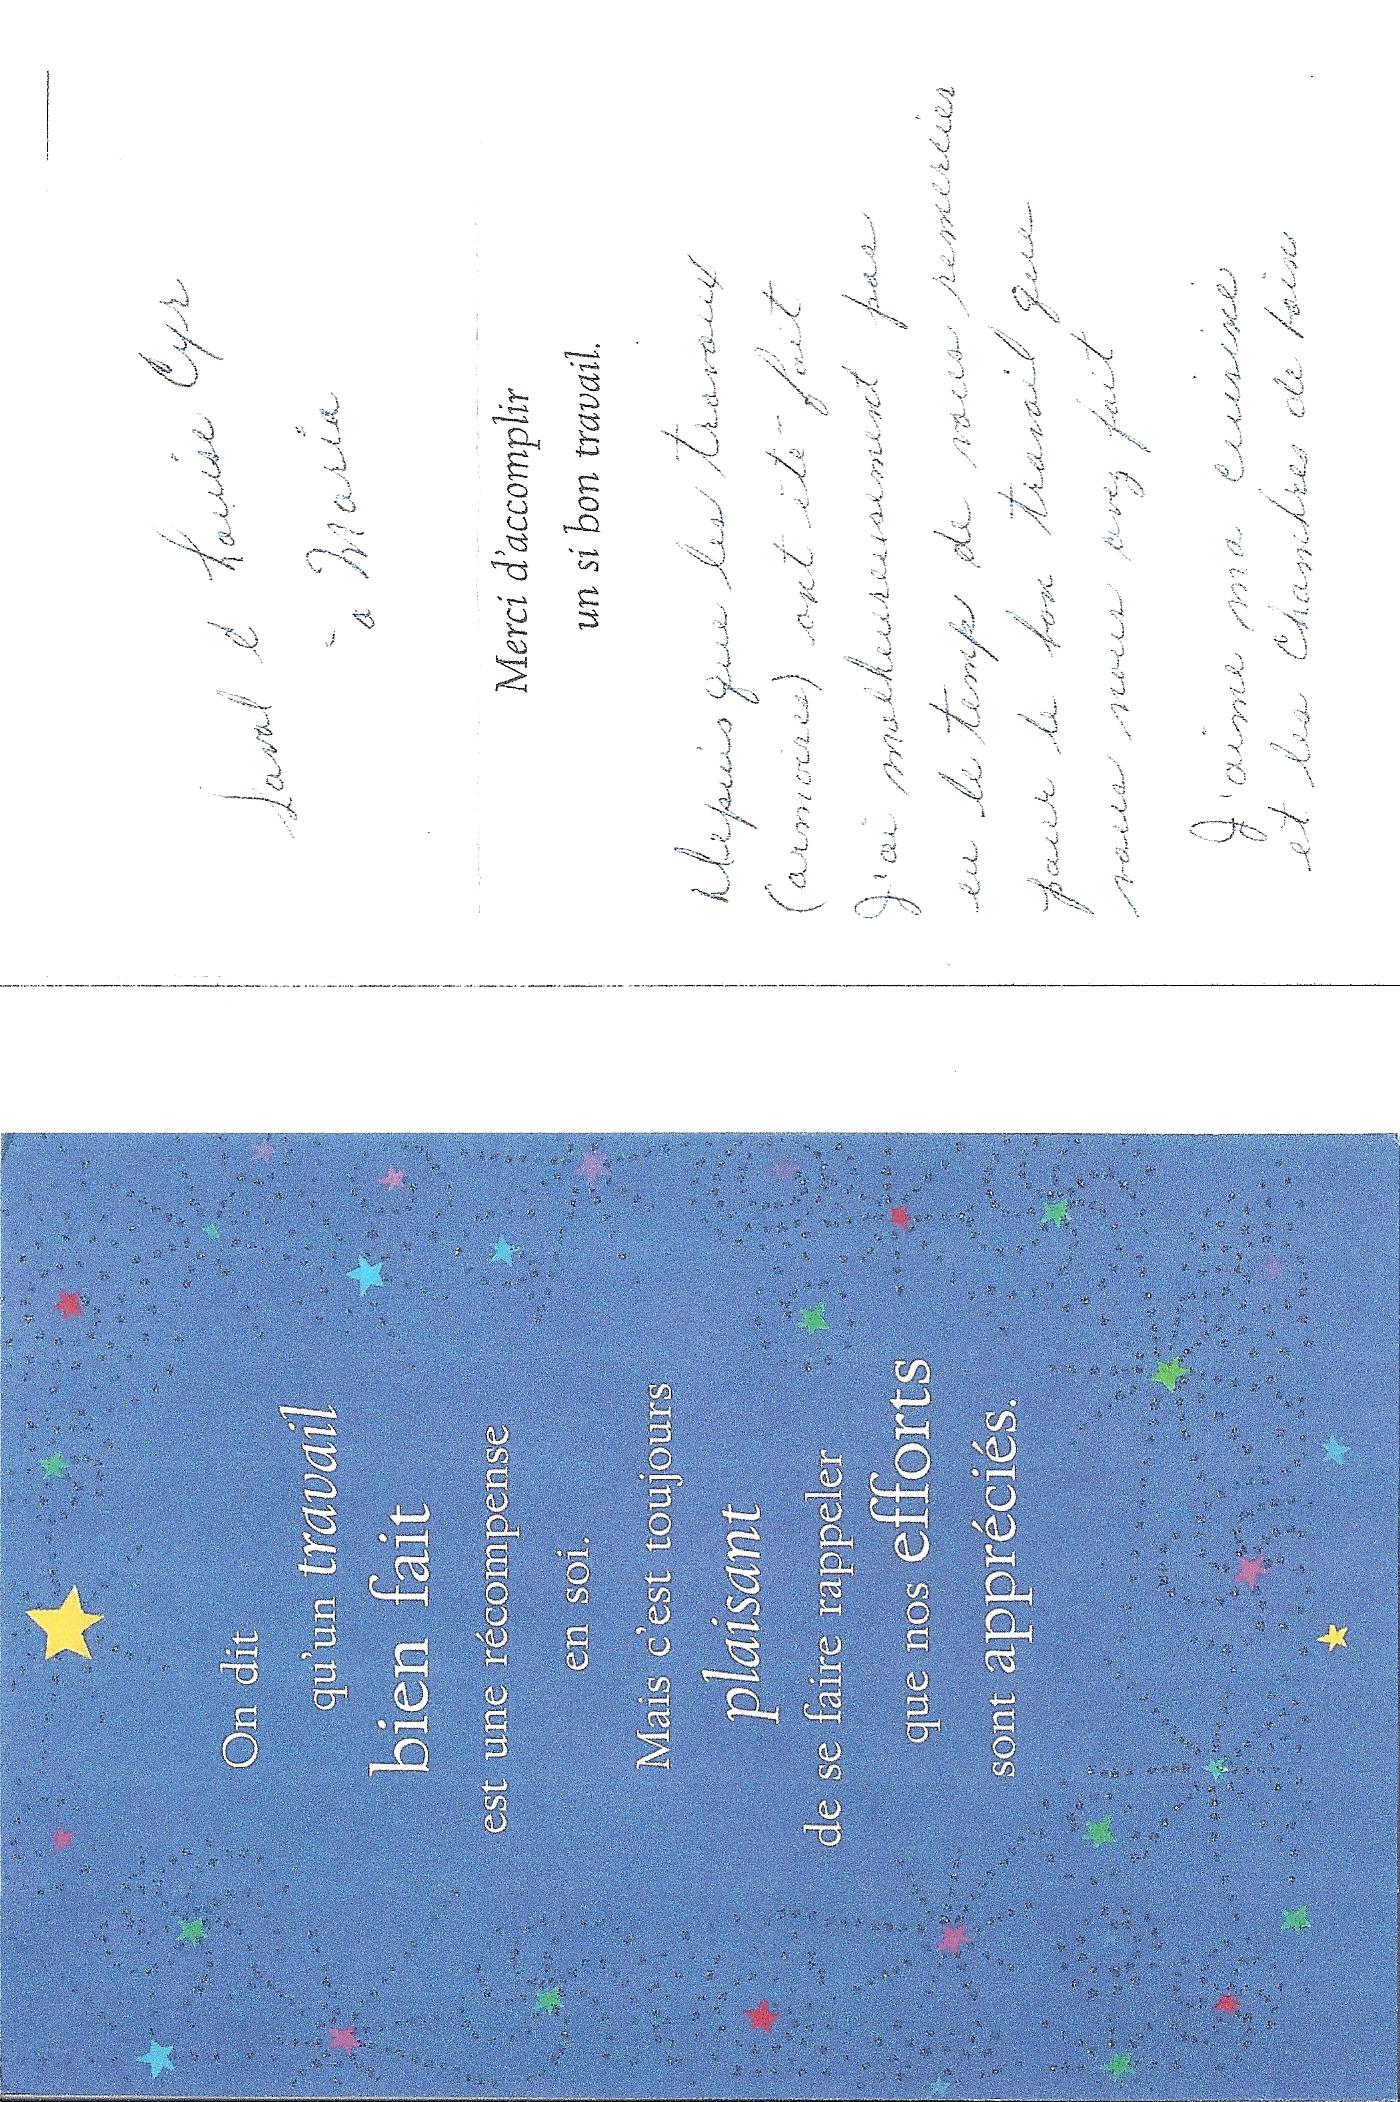 On dit
qu'un travail
bien fait
est une récompense
en soi.
Mais c'est toujours
plaisant
de se faire rappeler
que nos efforts
sont appréciés.
Laval et Louise Cyr
à Maria
Merci d'accomplir
un si bon travail.
Depuis que les travaux
(armoires) ont été fait
J'ai malheureusement pas
eu le temps de vous remercier
pour le bon travail que
vous nous avez fait
J'aime ma cuisine
et les chambres de bain